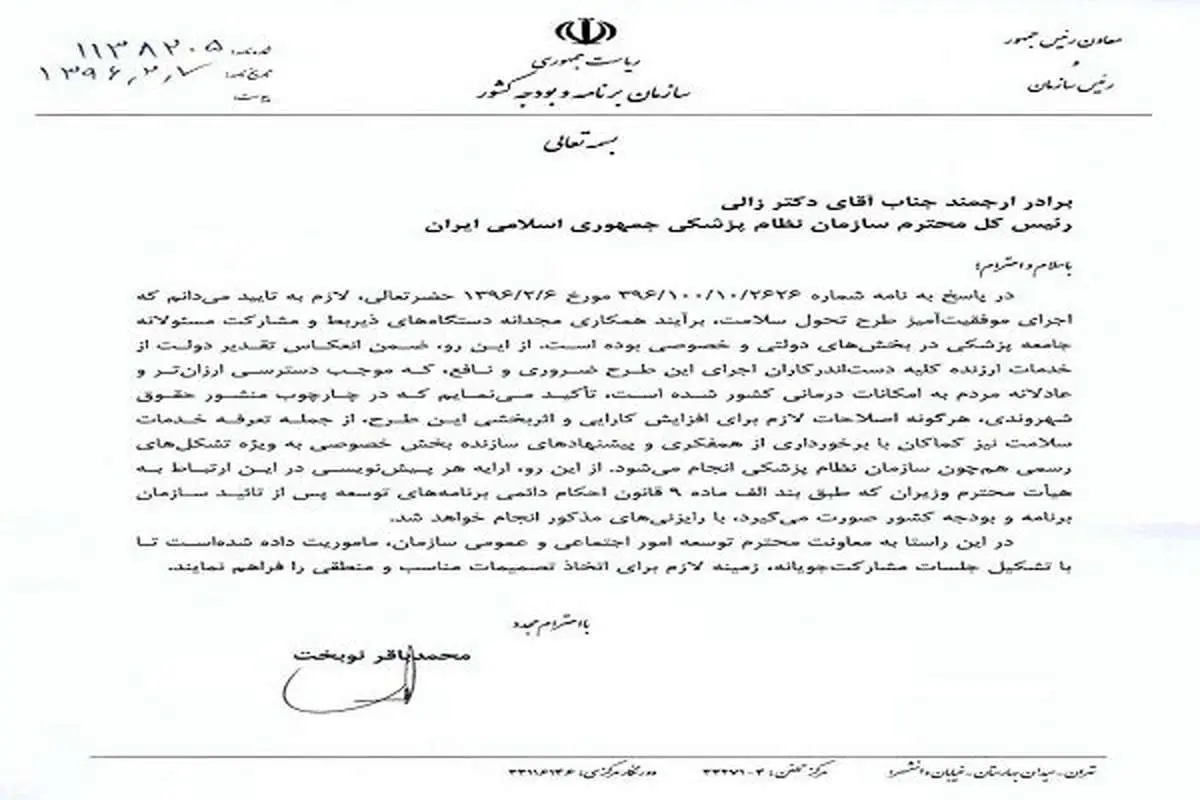 معاون رئیس جمهور
و
رئیس سازمان
ریاست جمهوری
سازمان برنامه و بودجه کشور
شماره: ۱۱۳۸۲۰۵
تاریخ نامه: ۱۳۹۶٫۲٫۷
پیوست:
بسمه تعالی
برادر ارجمند جناب آقای دکتر زالی
رئیس کل محترم سازمان نظام پزشکی جمهوری اسلامی ایران
با سلام و احترام؛
در پاسخ به نامه شماره ۳۹۶/۱۰۰/۱۰/۲۶۲۶ مورخ ۱۳۹۶/۲/۶ حضرتعالی، لازم به تایید می‌دانم که
اجرای موفقیت‌آمیز طرح تحول سلامت، برآیند همکاری مجدانه دستگاه‌های ذیربط و مشارکت مسئولانه
جامعه پزشکی در بخش‌های دولتی و خصوصی بوده است. از این رو، ضمن انعکاس تقدیر دولت از
خدمات ارزنده کلیه دست‌اندرکاران اجرای این طرح ضروری و نافع، که موجب دسترسی ارزان‌تر و
عادلانه مردم به امکانات درمانی کشور شده است، تأکید می‌نمایم که در چارچوب منشور حقوق
شهروندی، هرگونه اصلاحات لازم برای افزایش کارایی و اثربخشی این طرح، از جمله تعرفه خدمات
سلامت نیز کماکان با برخورداری از همفکری و پیشنهادهای سازنده بخش خصوصی به ویژه تشکل‌های
رسمی هم‌چون سازمان نظام پزشکی انجام می‌شود. از این رو، ارایه هر پیش‌نویسی در این ارتباط به
هیأت محترم وزیران که طبق بند الف ماده ۹ قانون احکام دائمی برنامه‌های توسعه پس از تائید سازمان
برنامه و بودجه کشور صورت می‌گیرد، با رایزنی‌های مذکور انجام خواهد شد.
در این راستا به معاونت محترم توسعه امور اجتماعی و عمومی سازمان، ماموریت داده شده‌است تا
با تشکیل جلسات مشارکت‌جویانه، زمینه لازم برای اتخاذ تصمیمات مناسب و منطقی را فراهم نمایند.
با احترام مجدد
محمدباقر نوبخت
تهران - میدان بهارستان - خیابان دانشسرا مرکز تلفن: ۴-۳۳۲۷۱ دورنگار مرکزی: